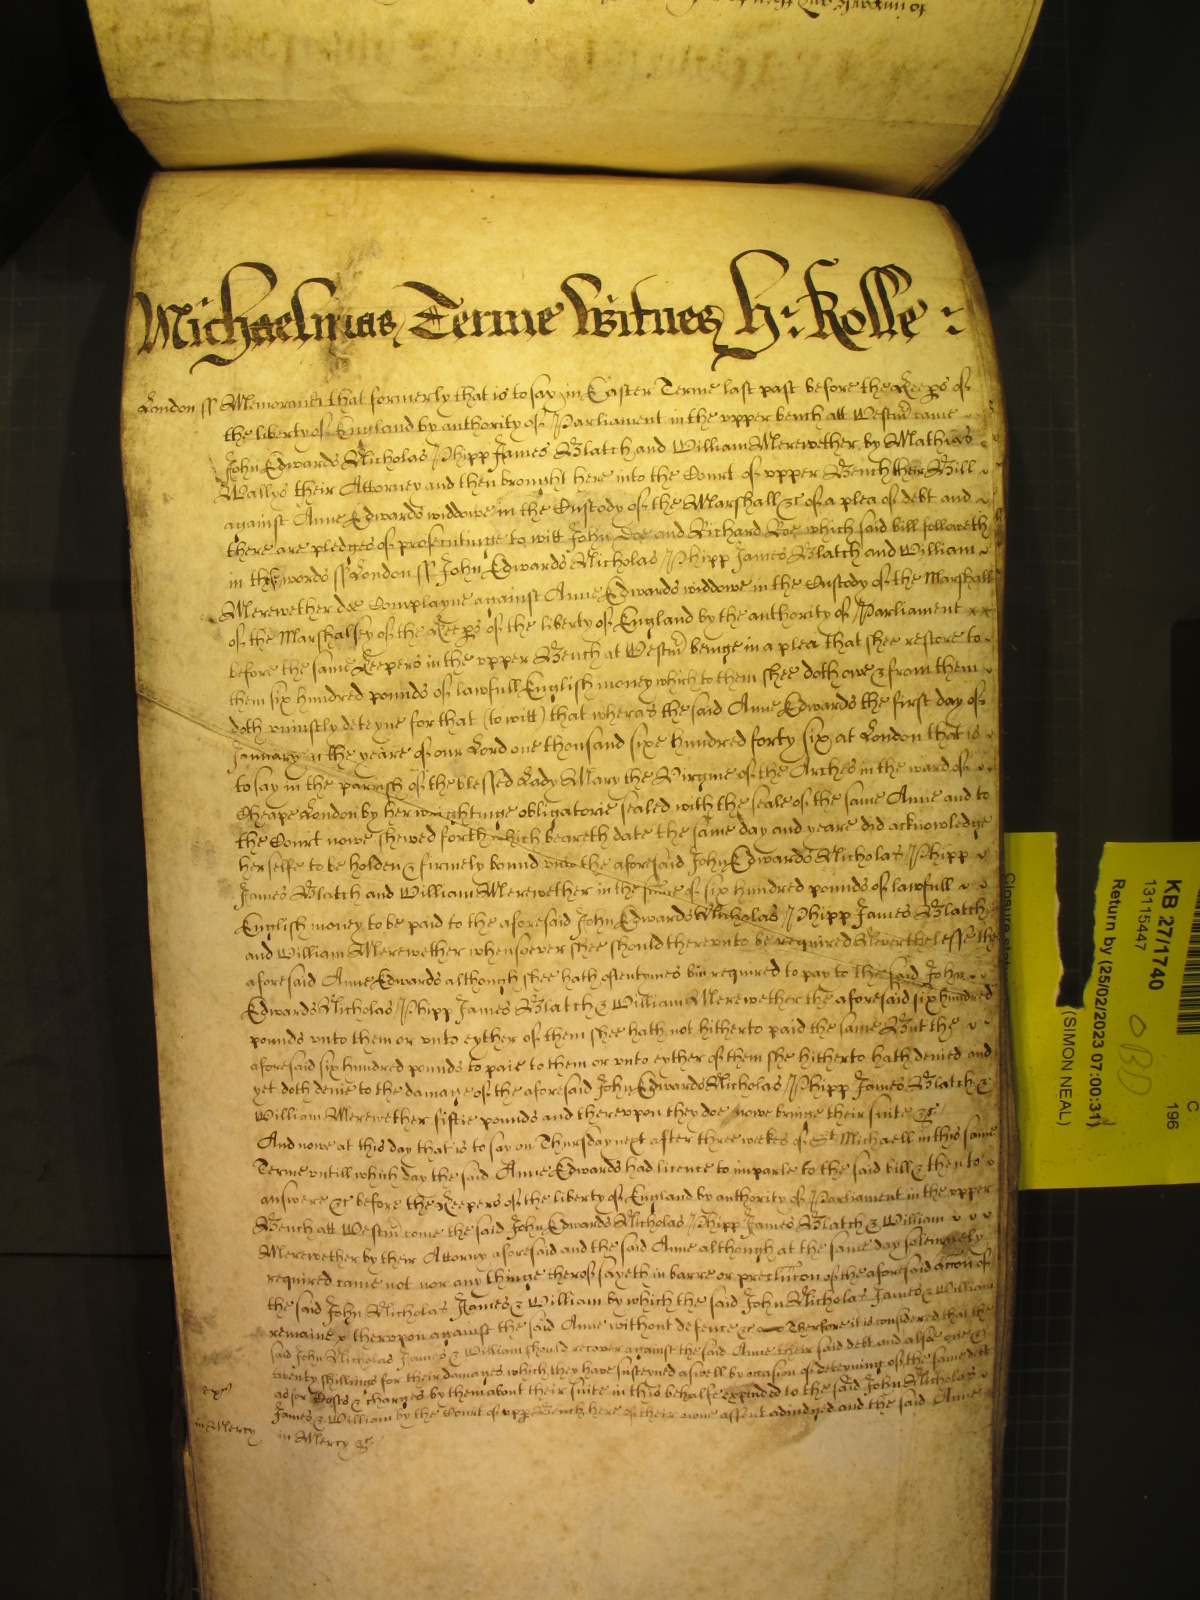 Michaelmas Terme Witnes H: Rolle :
London ss Memorand that formerly that is to say in Easter Terme last past before the Keeps of
the liberty of England by authority of Parliament in the upper bench att Westm came
John Edwards Nicholas Phipp James Blatch and William Merewether by Mathias
Wallys their Attorney and then brought here into the Court of upper Bench their Bill
against Anne Edwards widdowe in the Custody of the Marshall &c of a plea of debt and
there are pledges of prosecutinge to witt John Doe and Richard Roe which said bill followeth
in theis words ss London ss John Edwards Nicholas Phipp James Blatch and William
Merewether doe Complayne against Anne Edwards widdowe in the Custody of the Marshall
of the Marshalsey of the Keeps of the liberty of England by the authority of Parliament
before the same Keepers in the upper Bench at Westm beinge in a plea that shee restore to
them six hundred pounds of lawfull English money which to them shee doth owe & from them
doth uniustly deteyne for that (to witt) that wheras the said Anne Edwards the first day of
January in the yeare of our Lord one thousand sixe hundred forty six at London that is
to say in the parrish of the blessed Lady Mary the Virgine of the Arches in the ward of
Cheape London by her wrightinge obligatorie sealed with the seale of the same Anne and to
the Court nowe shewed forth which beareth date the same day and yeare did acknowledge
her selfe to be holden & firmely bound unto the aforesaid John Edwards Nicholas Phipp
James Blatch and William Merewether in the sume of six hundred pounds of lawfull
English money to be paid to the aforesaid John Edwards Nicholas Phipp James Blatch
and William Merewether whensoever shee should therevnto be required Neverthelesse the
aforesaid Anne Edwards although shee hath oftentymes bin required to pay to the said John
Edwards Nicholas Phipp James Blatch & William Merewether the aforesaid six hundred
pounds vnto them or vnto eyther of them shee hath not hitherto paid the same But the
aforesaid six hundred pounds to paie to them or vnto eyther of them she hitherto hath denied and
yet doth denie to the damage of the aforesaid John Edwards Nicholas Phipp James Blatch &
William Merewether fiftie pounds and therevpon they doe nowe bringe their suite &c
And nowe at this day that is to say on Thursday next after three weekes of St Michaell in this same
Terme vntill which day the said Anne Edwards had licence to imparle to the said bill & then to
answere &c before the Keepers of the liberty of England by authority of Parliament in the upper
Bench att Westm come the said John Edwards Nicholas Phipp James Blatch & William
Merewether by their Attorny aforesaid and the said Anne although at the same day solemnely
required came not nor any thinge therof sayeth in barre or preclucon of the aforesaid accon of
the said John Nicholas James & William by which the said John Nicholas James & William
remaine thervpon against the said Anne without defence &c Therfore it is considered that the
said John Nicholas James & William should recover against the said Anne their said debt and alsoe one &
twenty shillings for their damages which they have susteyned aswell by occasion of deteyning of the same debt
as for Costs & charges by them about their suite in this behalfe expended to the said John Nicholas
James & William by the Court of upp Bench here of their owne assent adiudged and the said Anne
in Mercy &c
in Mercy
KB 27/1740
13115447
Return by (25/02/2023 07:00:31)
(SIMON NEAL)
C
196